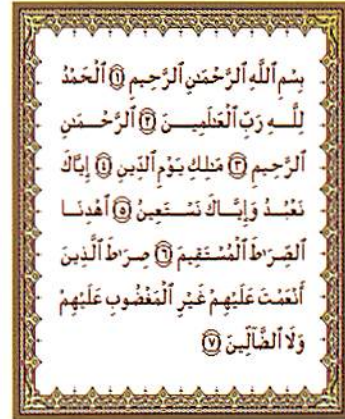 بِسْمِ ٱللَّهِ ٱلرَّحْمَـٰنِ ٱلرَّحِيمِ ۝١ ٱلْحَمْدُ
لِلَّـهِ رَبِّ ٱلْعَـٰلَمِيـنَ ۝٢ ٱلرَّحْـمَـٰنِ
ٱلرَّحِيمِ ۝٣ مَـٰلِكِ يَوْمِ ٱلدِّينِ ۝٤ إِيَّاكَ
نَعْبُـدُ وَإِيَّـاكَ نَسْـتَعِينُ ۝٥ ٱهْدِنَـا
ٱلصِّرَٰطَ ٱلْمُسْـتَقِيمَ ۝٦ صِـرَٰطَ ٱلَّذِينَ
أَنْعَمْتَ عَلَيْهِمْ غَيْرِ ٱلْمَغْضُوبِ عَلَيْهِمْ
وَلَا ٱلضَّآلِّينَ ۝٧